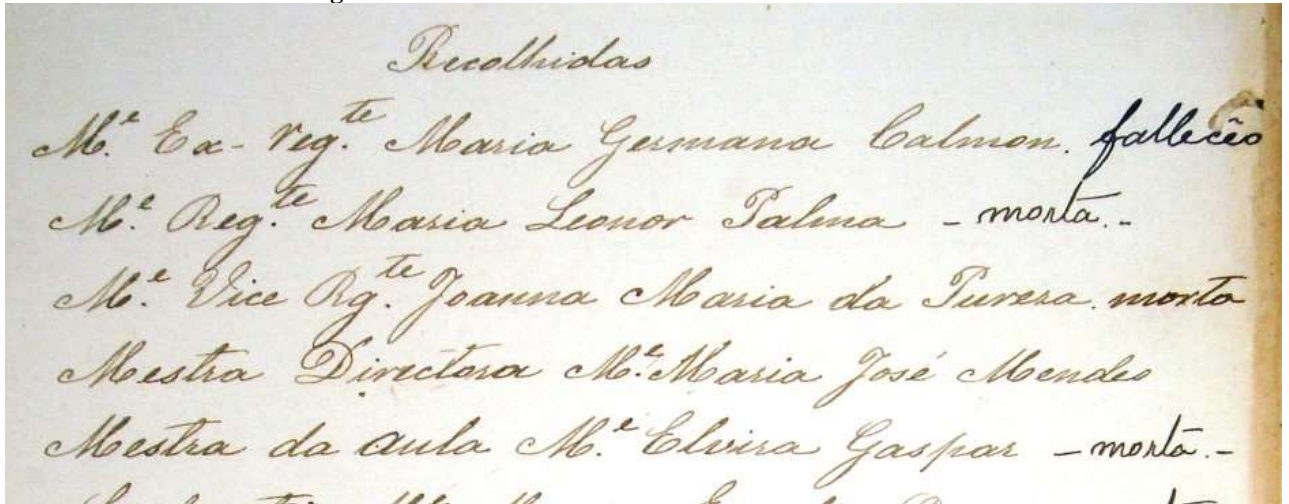 Recolhidas
M.e Ex-reg.te Maria Germana Calmon. fallecêo
M.e Reg.te Maria Leonor Palma - morta.-
M.e Vice Rg.te Joanna Maria da Pureza. morta
Mestra Directora M.e Maria José Mendes
Mestra da aula M.e Elvira Gaspar - morta.-